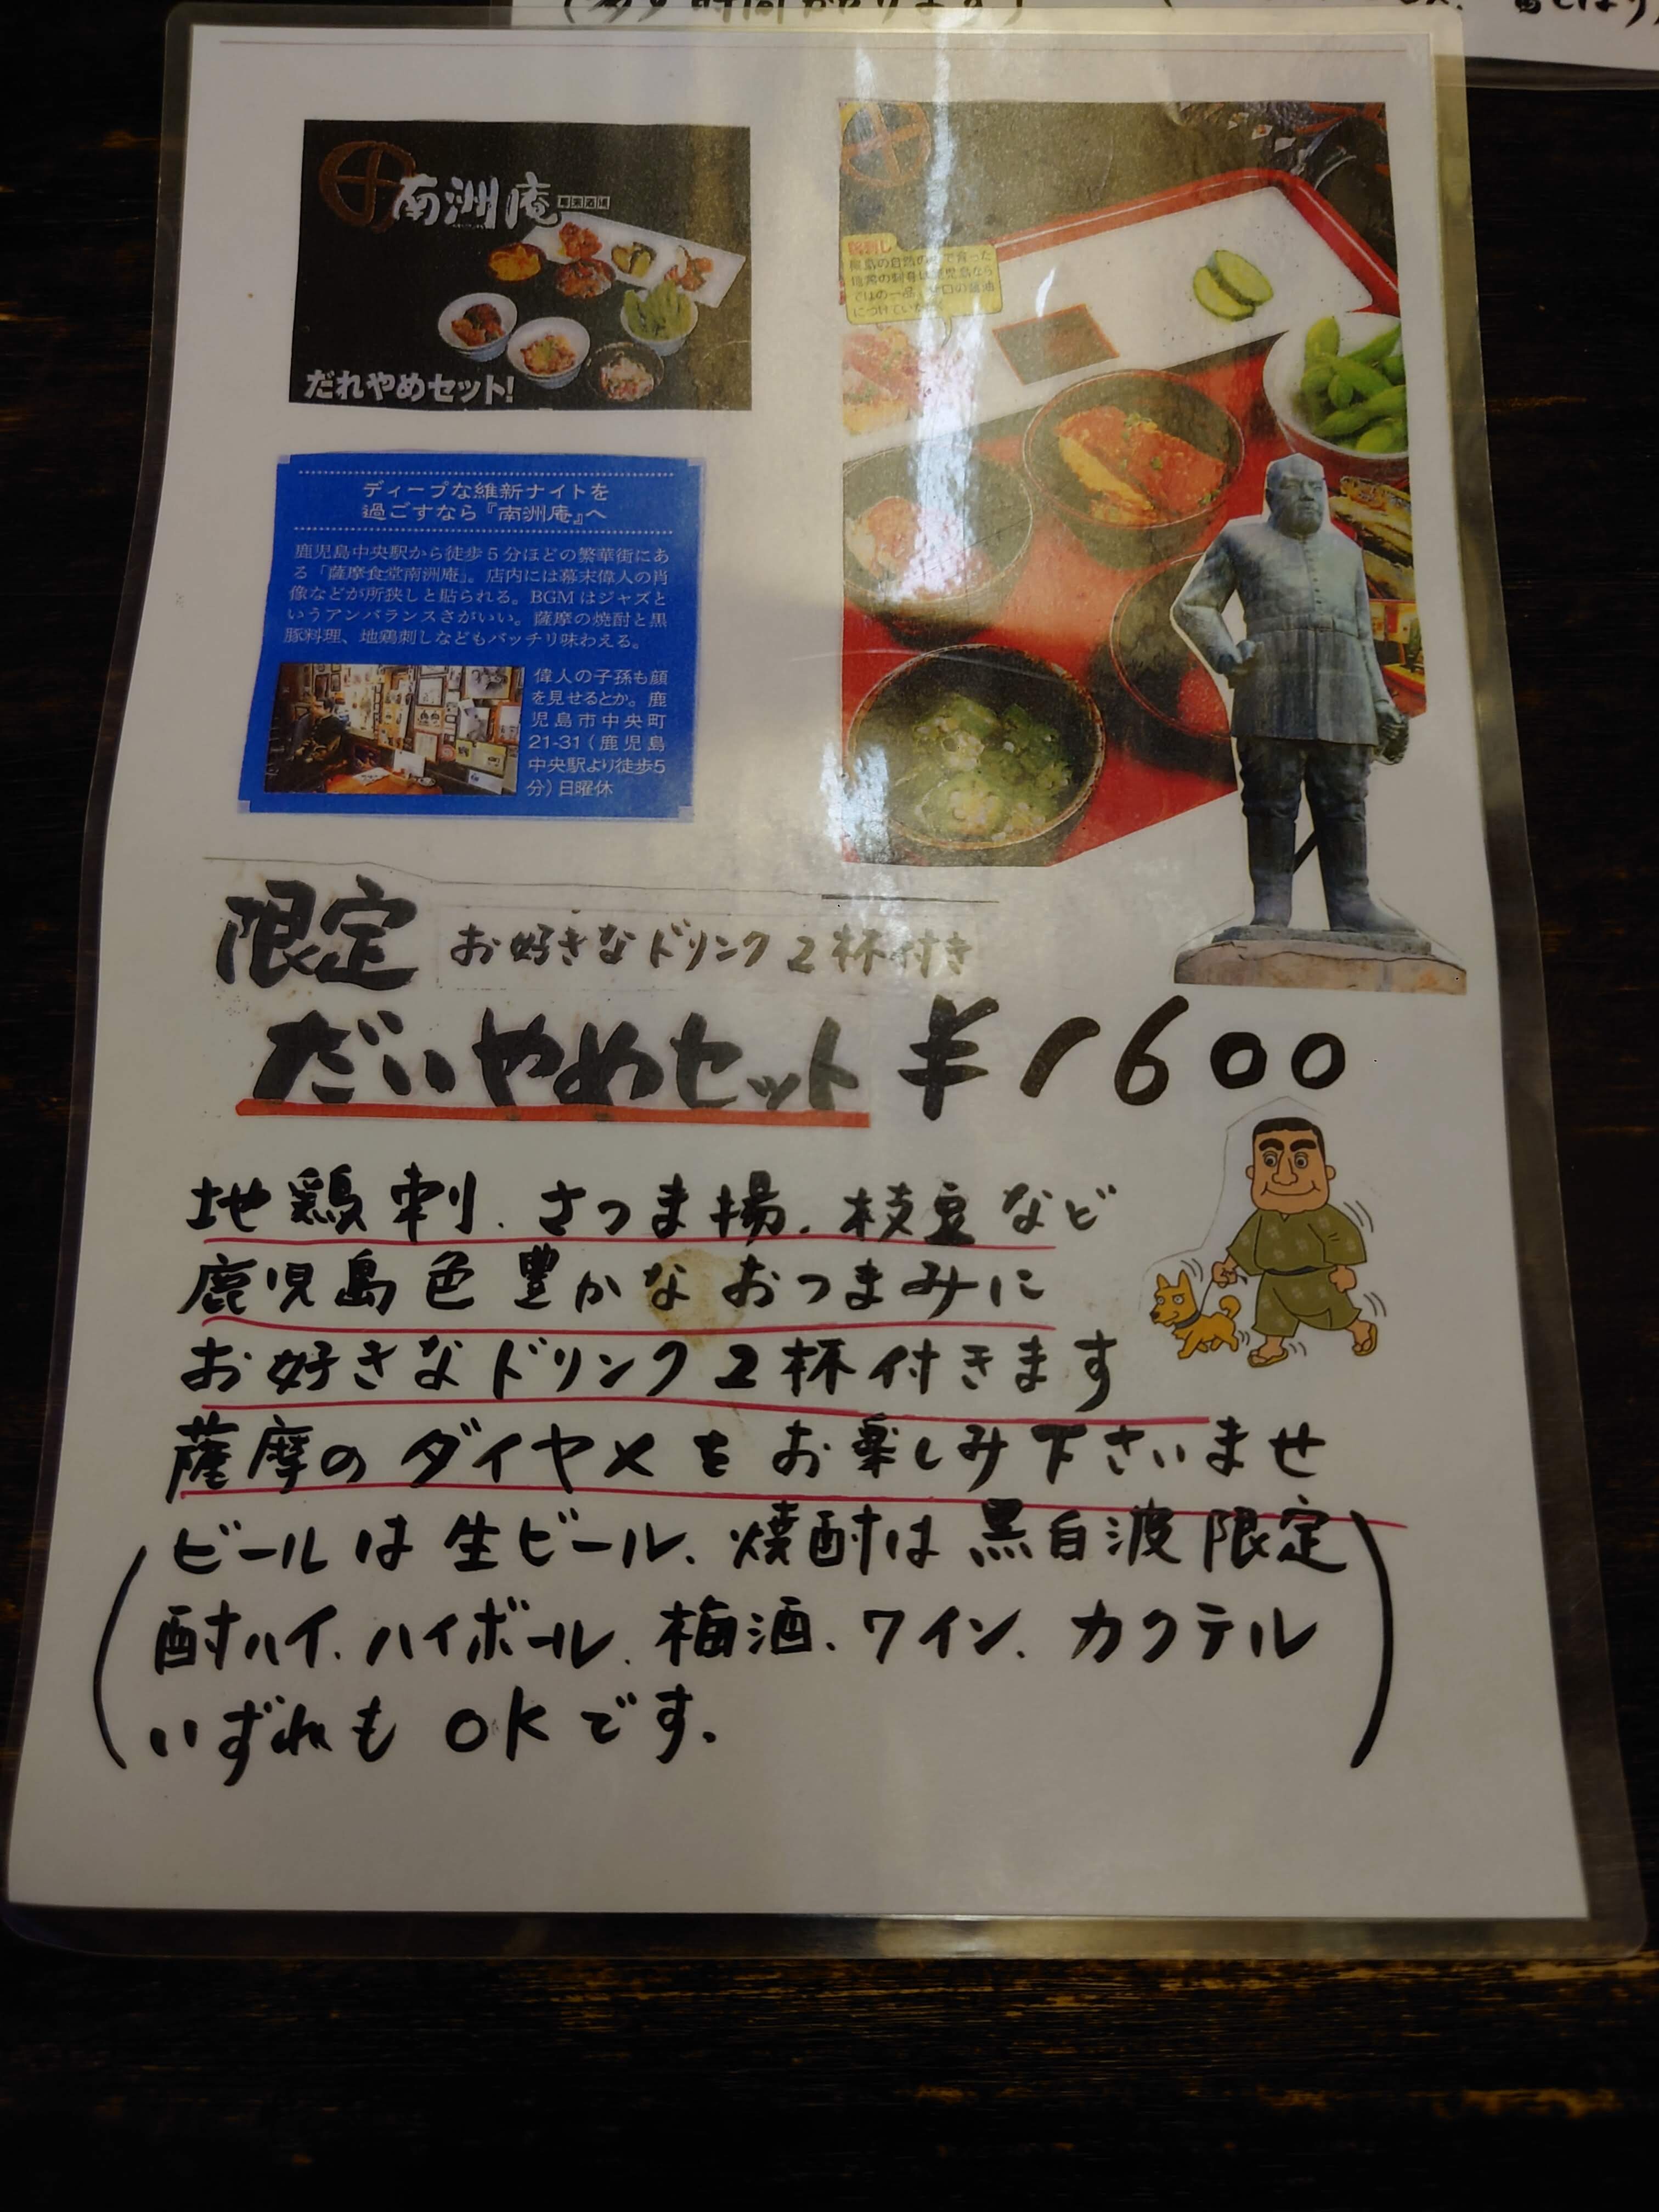 南洲庵
だれやめセット!
ディープな維新ナイトを
過ごすなら『南洲庵』へ
鹿児島中央駅から徒歩5分ほどの繁華街にあ
る「薩摩食堂南洲庵」。店内には幕末偉人の肖
像などが所狭しと貼られる。BGMはジャズと
いうアンバランスさがいい。薩摩の焼酎と黒
豚料理、地鶏刺しなどもバッチリ味わえる。
偉人の子孫も顔
を見せるとか。鹿
児島市中央町
21-31(鹿児島
中央駅より徒歩5
分)日曜休
限定 お好きなドリンク2杯付き
だいやめセット ¥1600
地鶏刺、さつま揚、枝豆など
鹿児島色豊かなおつまみに
お好きなドリンク2杯付きます
薩摩のダイヤメをお楽しみ下さいませ
(ビールは生ビール、焼酎は黒白波限定
酎ハイ、ハイボール、梅酒、ワイン、カクテル
いずれもOKです。)